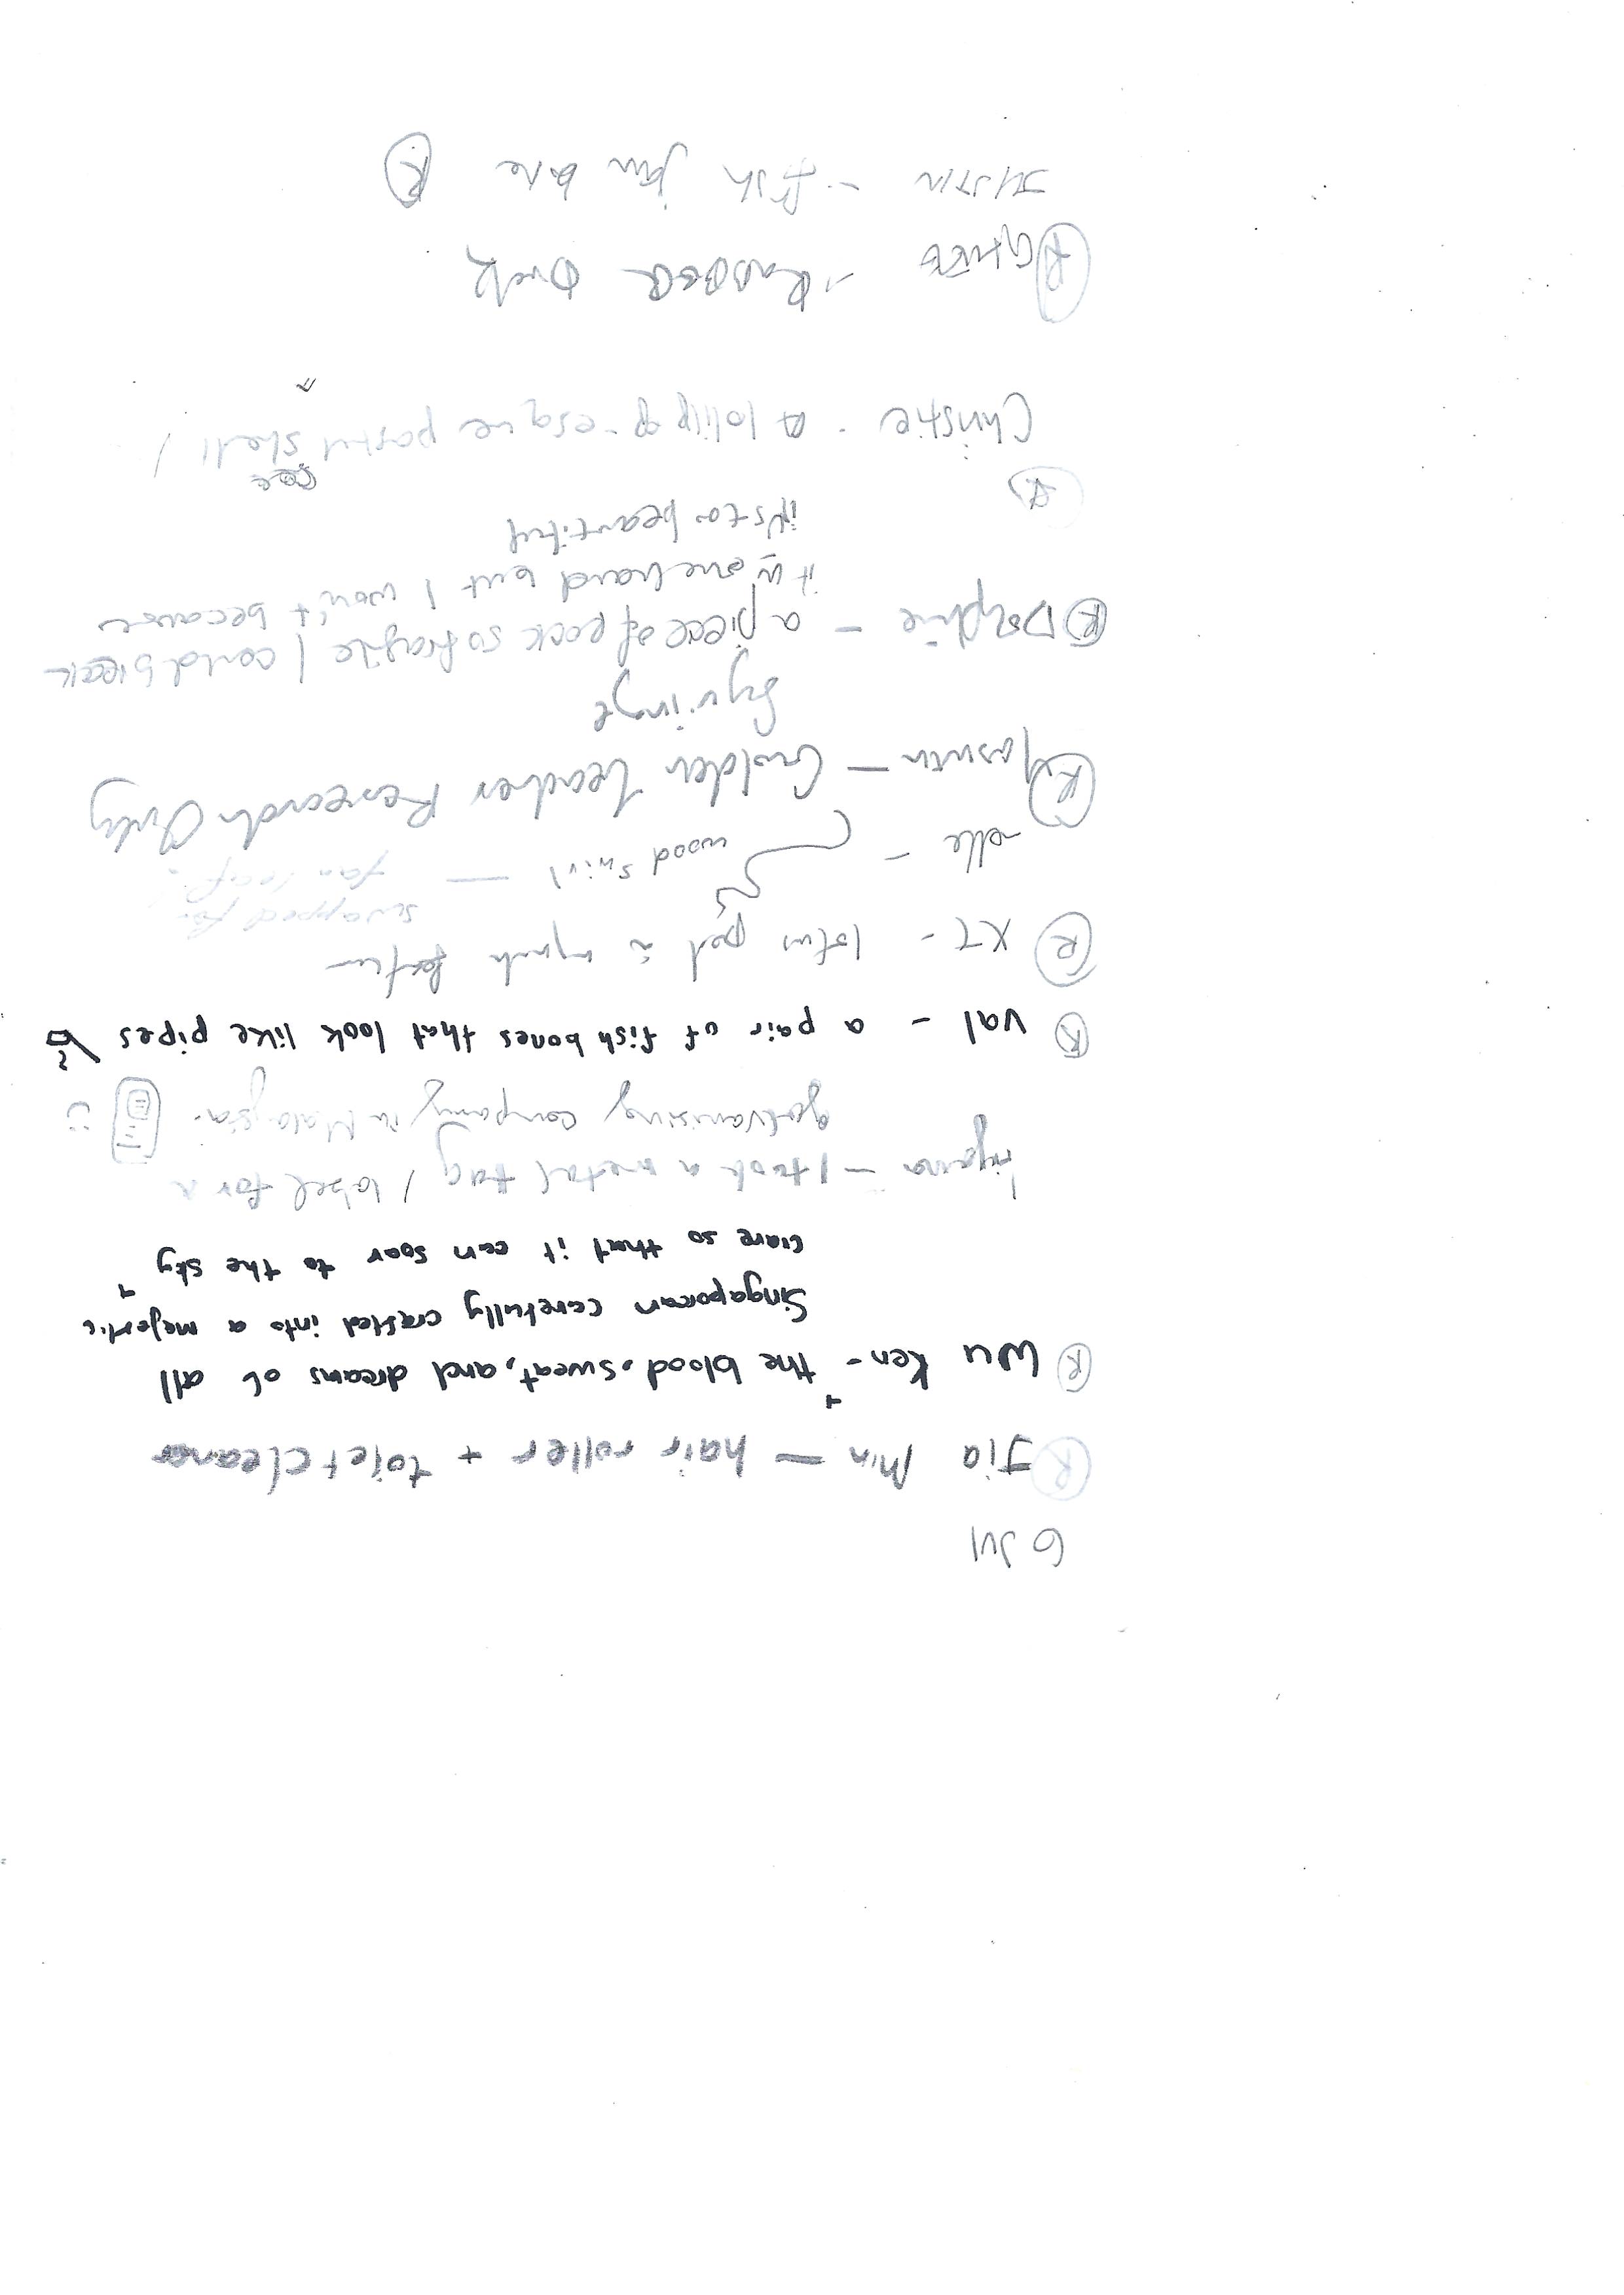 6 Jul
Ⓡ Jia Min — hair roller + toilet cleaner
Ⓡ Wu Ken - "the blood, sweat, and dreams of all
Singaporean carefully crafted into a majestic
crane so that it can soar to the sky"
— I took a metal tag / label for a
galvanising company in Malaysia. :)
Ⓡ val - a pair of fish bones that look like pipes
Ⓡ XT - lotus pod
-elle - wood swirl — swapped for
fan leaf!
Ⓡ Yasmin — Golden Teacher Research Only
Syringe
Ⓡ Dolphie - a piece of rock so fragile I could break
it in one hand but I won't because
it's too beautiful
Ⓡ
Christie - A lolipop-esque pastel sea shell /
Ⓡ - RUBBER DucK
JUSTIN - fish jaw bone Ⓡ